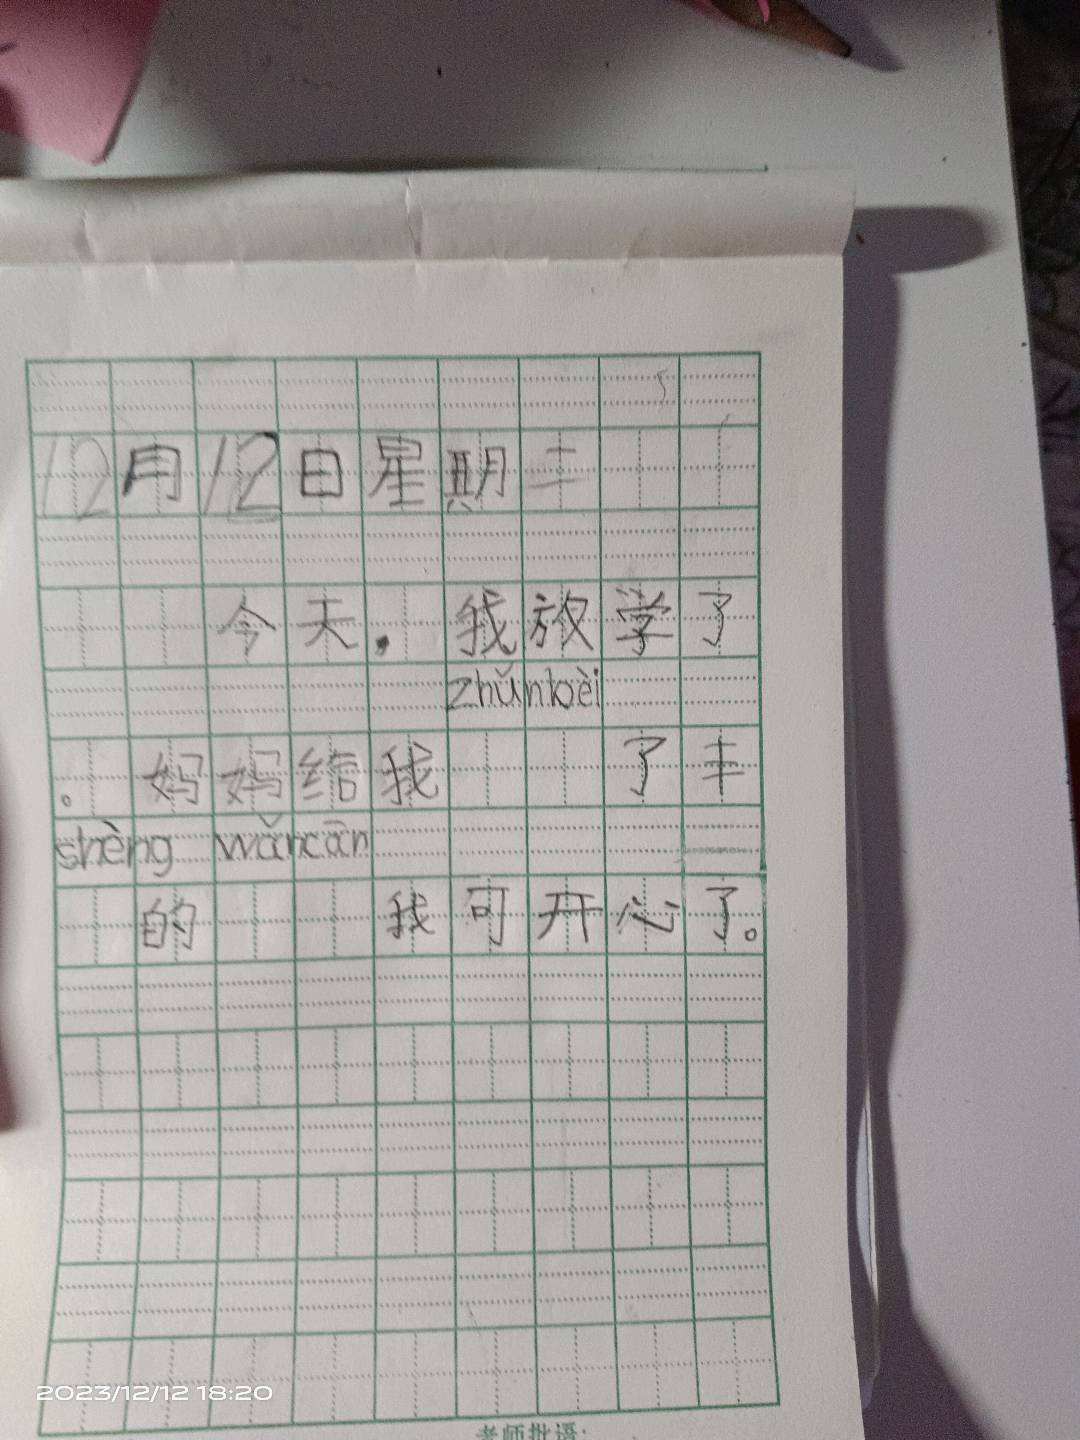 12月12日星期二
今天.我放学了
zhǔnbèi
。妈妈给我 了丰
shèng wǎncān
的 我可开心了。
2023/12/12 18:20
老师批语: